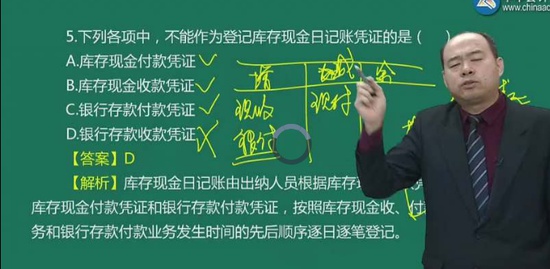 www.chinaac
5.下列各项中，不能作为登记库存现金日记账凭证的是（ ）
A.库存现金付款凭证
B.库存现金收款凭证
C.银行存款付款凭证
D.银行存款收款凭证
增 减 余
现收 现付
银付
【答案】D
【解析】库存现金日记账由出纳人员根据库存
库存现金付款凭证和银行存款付款凭证，按照库存现金收、付
务和银行存款付款业务发生时间的先后顺序逐日逐笔登记。